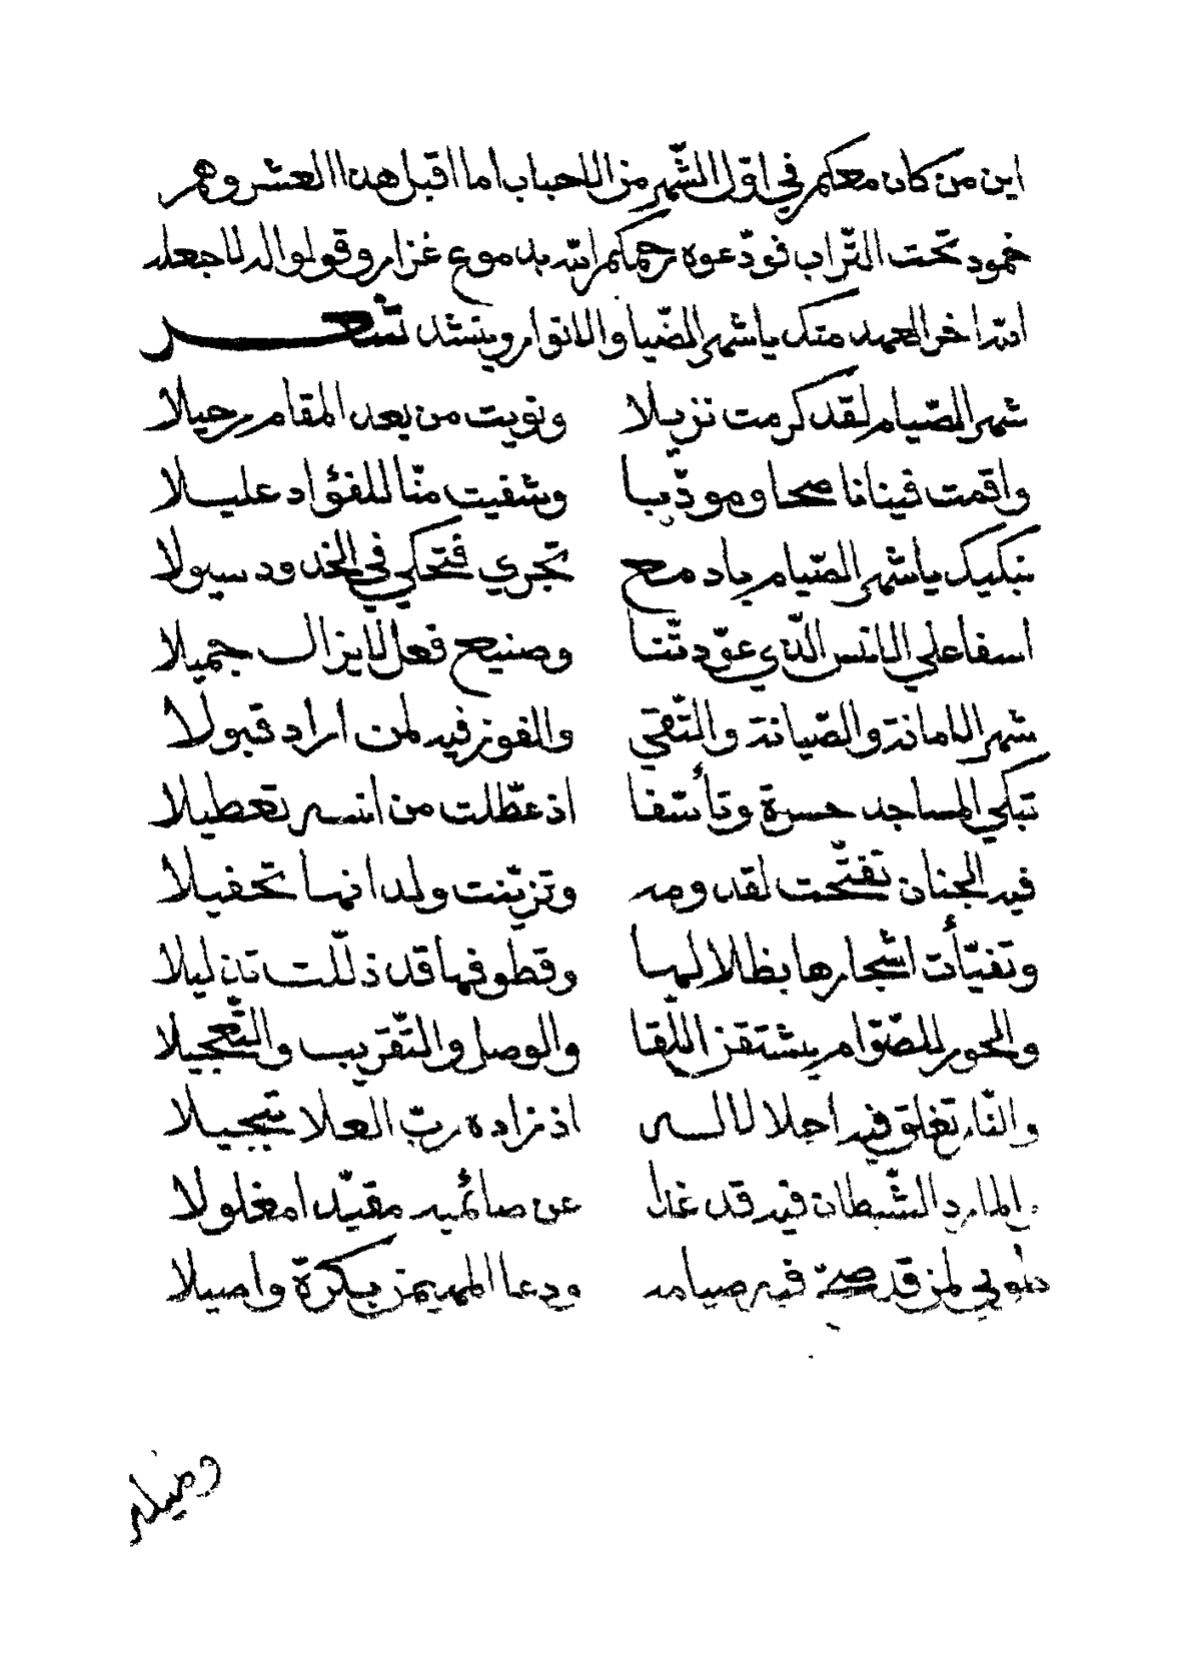 اين من كان معكم في اوّل الشّهر من الاحباب اما اقبل هذا العشر وهم
خمود تحت التّراب فودّعوه رحمكم الله بدموع غزار وقولوا له لا جعله
الله اخر العهد منك يا شهر الضّيا والانوار وينشد شعر
شهر الصّيام لقد كرمت نزيلا ونويت من بعد المقام رحيلا
واقمت فينا ناصحا ومودّبا وشفيت منّا للفؤاد عليلا
نبكيك يا شهر الصّيام بادمع تجري فتحكي في الخدود سيولا
اسفا علي الانس الّذي عوّدتّنا وصنيع فعل لا يزال جميلا
شهر الامانة والصّيانة والتّقي والفوز فيه لمن اراد قبولا
تبكي المساجد حسرة وتأسّفا اذ عطّلت من انسه تعطيلا
فيه الجنان تفتّحت لقدومه وتزيّنت ولدانها تحفيلا
وتفيّأت اشجارها بظلالها وقطوفها قد ذلّلت تذليلا
والحور للصّوّام يشتقن اللّقا والوصل والتّقريب والتّعجيلا
والنّار تغلق فيه اجلالا له اذ زاده ربّ العلا تبجيلا
والمارد الشّيطان فيه قد غدا عن صائميه مقيّدا مغلولا
طوبي لمن قد صحّ فيه صيامه ودعا المهيمن بكرة واصيلا